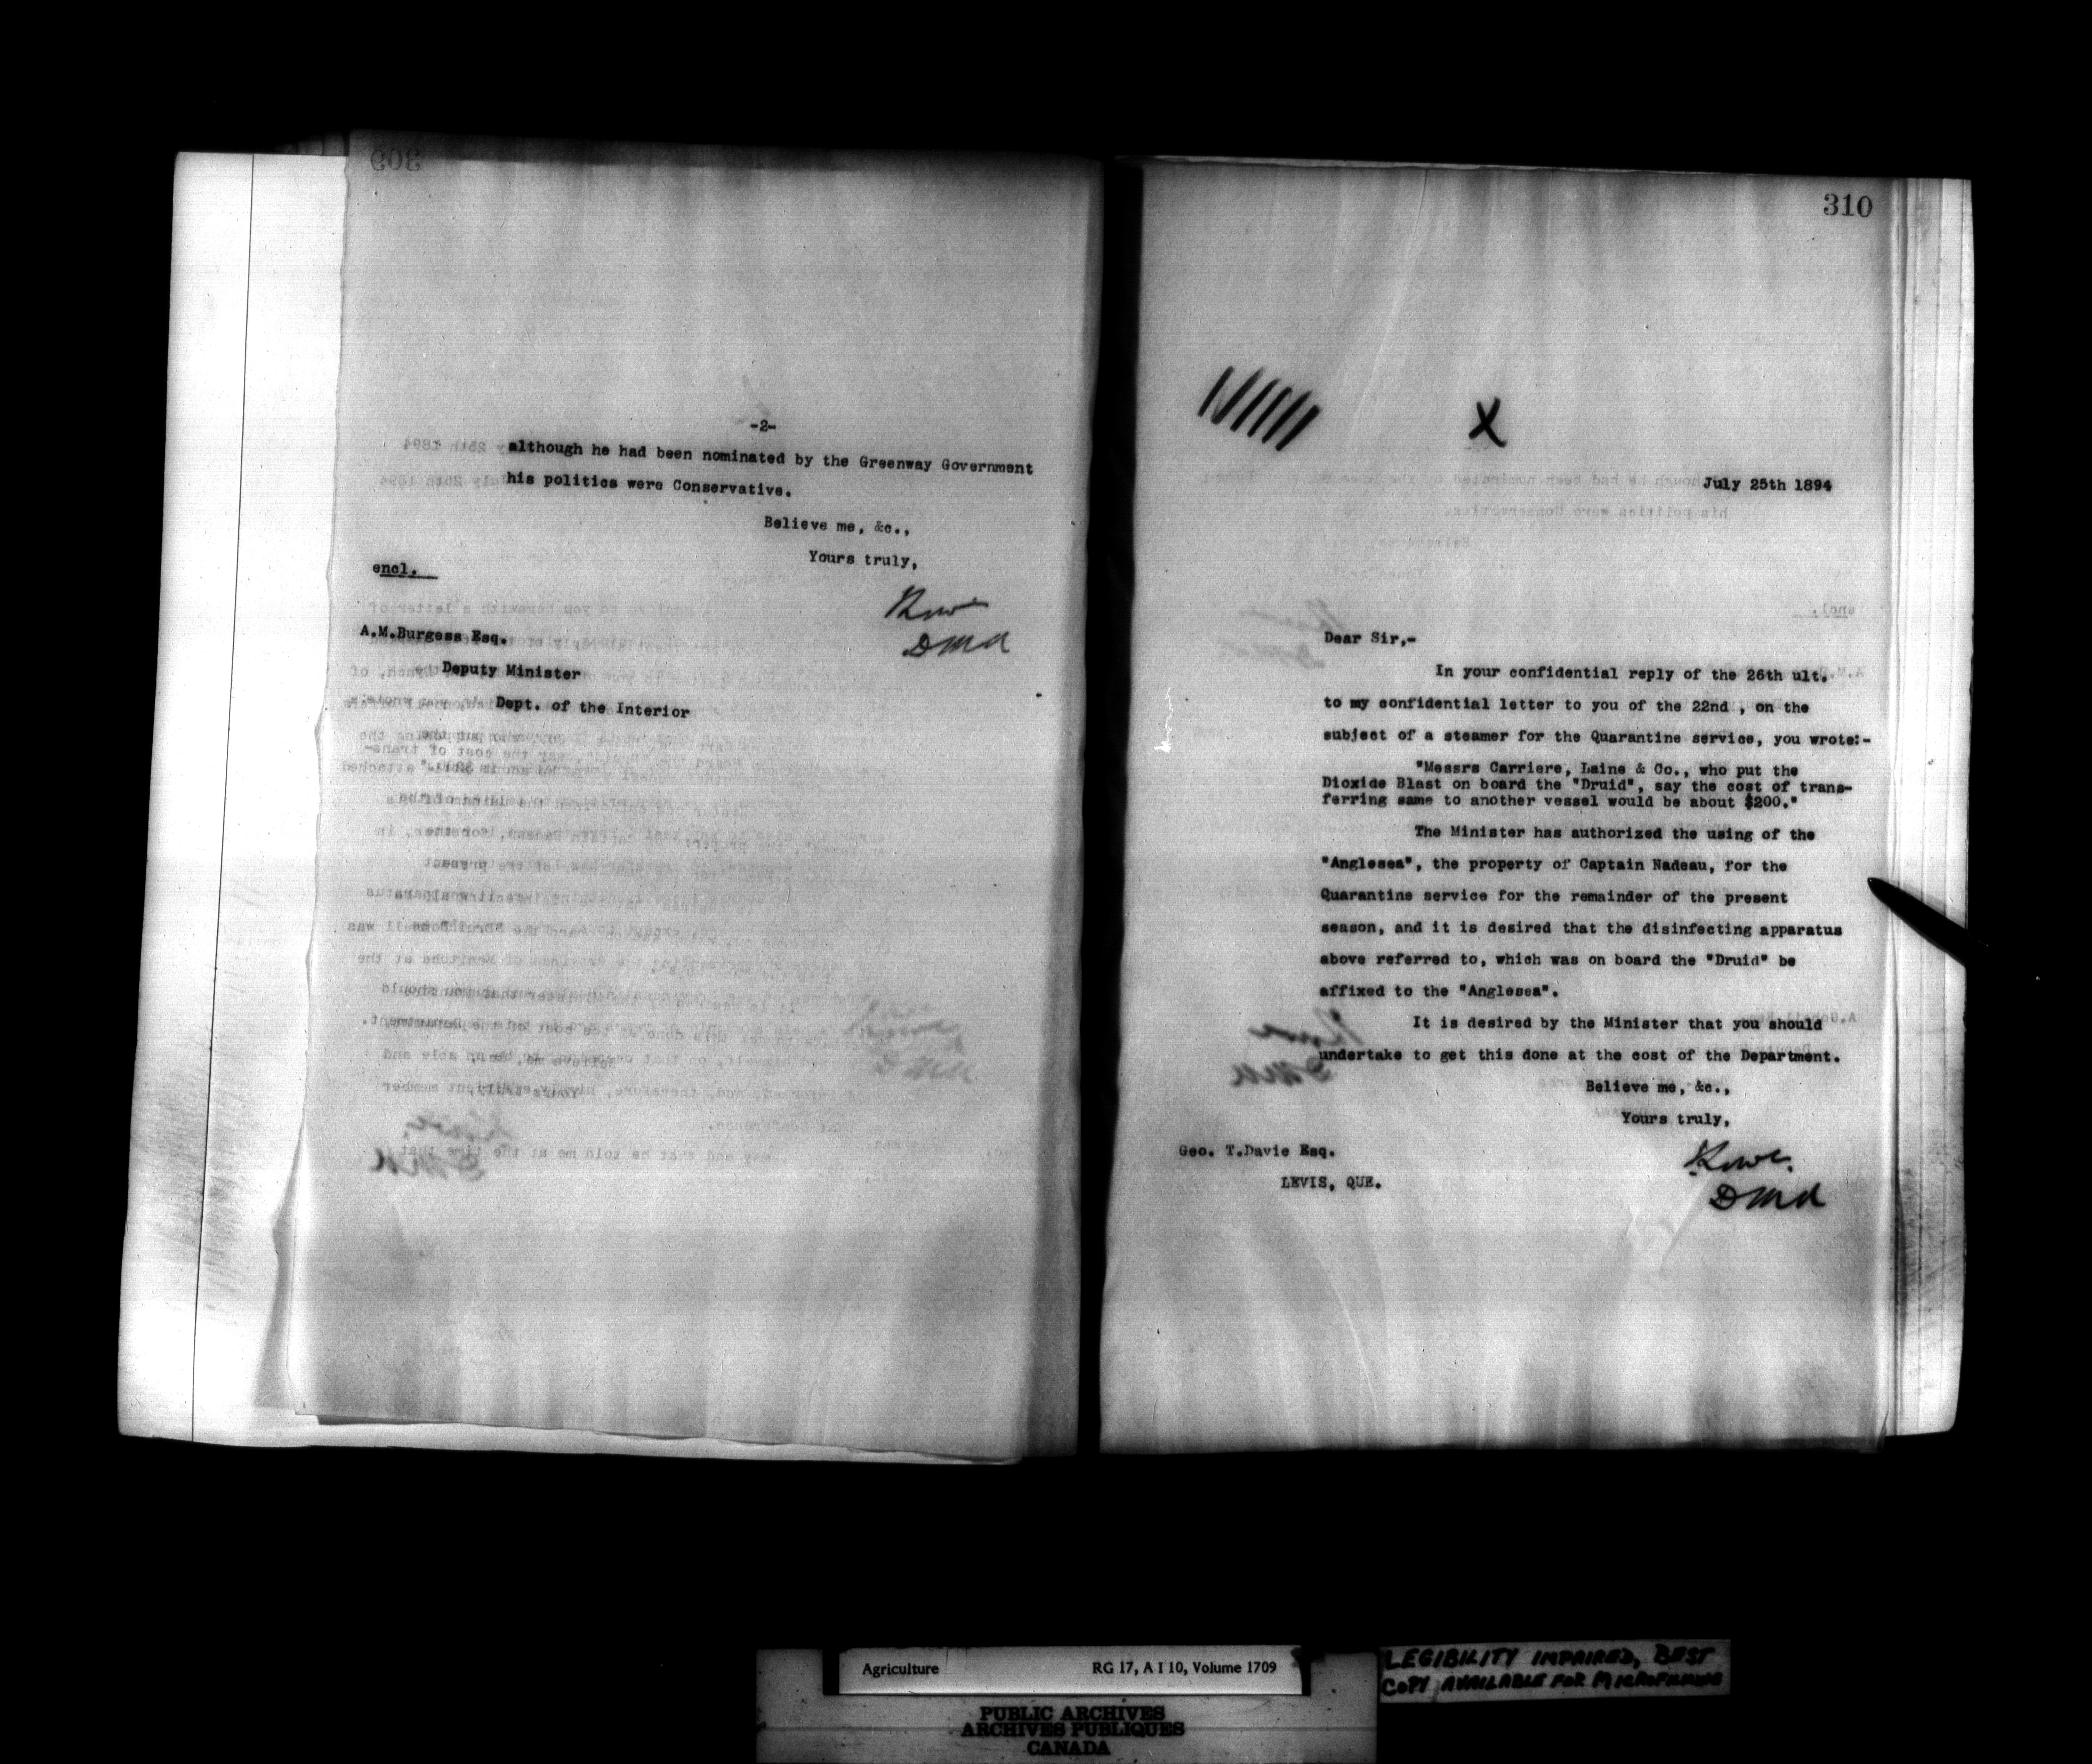 -2-
although he had been nominated by the Greenway Government
his politics were Conservative.
Believe me, &c.,
Yours truly,
encl.
DMA
A.M.Burgess Esq.
Deputy Minister
Dept. of the Interior
310
X
July 25th 1894
Dear Sir,-
In your confidential reply of the 26th ult.
to my confidential letter to you of the 22nd , on the
subject of a steamer for the Quarantine service, you wrote:-
"Messrs Carriere, Laine & Co., who put the
Dioxide Blast on board the "Druid", say the cost of trans-
ferring same to another vessel would be about $200."
The Minister has authorized the using of the
"Anglesea", the property of Captain Nadeau, for the
Quarantine service for the remainder of the present
season, and it is desired that the disinfecting apparatus
above referred to, which was on board the "Druid" be
affixed to the "Anglesea".
It is desired by the Minister that you should
undertake to get this done at the cost of the Department.
Believe me, &c.,
Yours truly,
Geo. T.Davie Esq.
LEVIS, QUE.
DMA
Agriculture RG 17, A I 10, Volume 1709
LEGIBILITY IMPAIRED, BEST
COPY AVAILABLE FOR MICROFILMING
PUBLIC ARCHIVES
ARCHIVES PUBLIQUES
CANADA